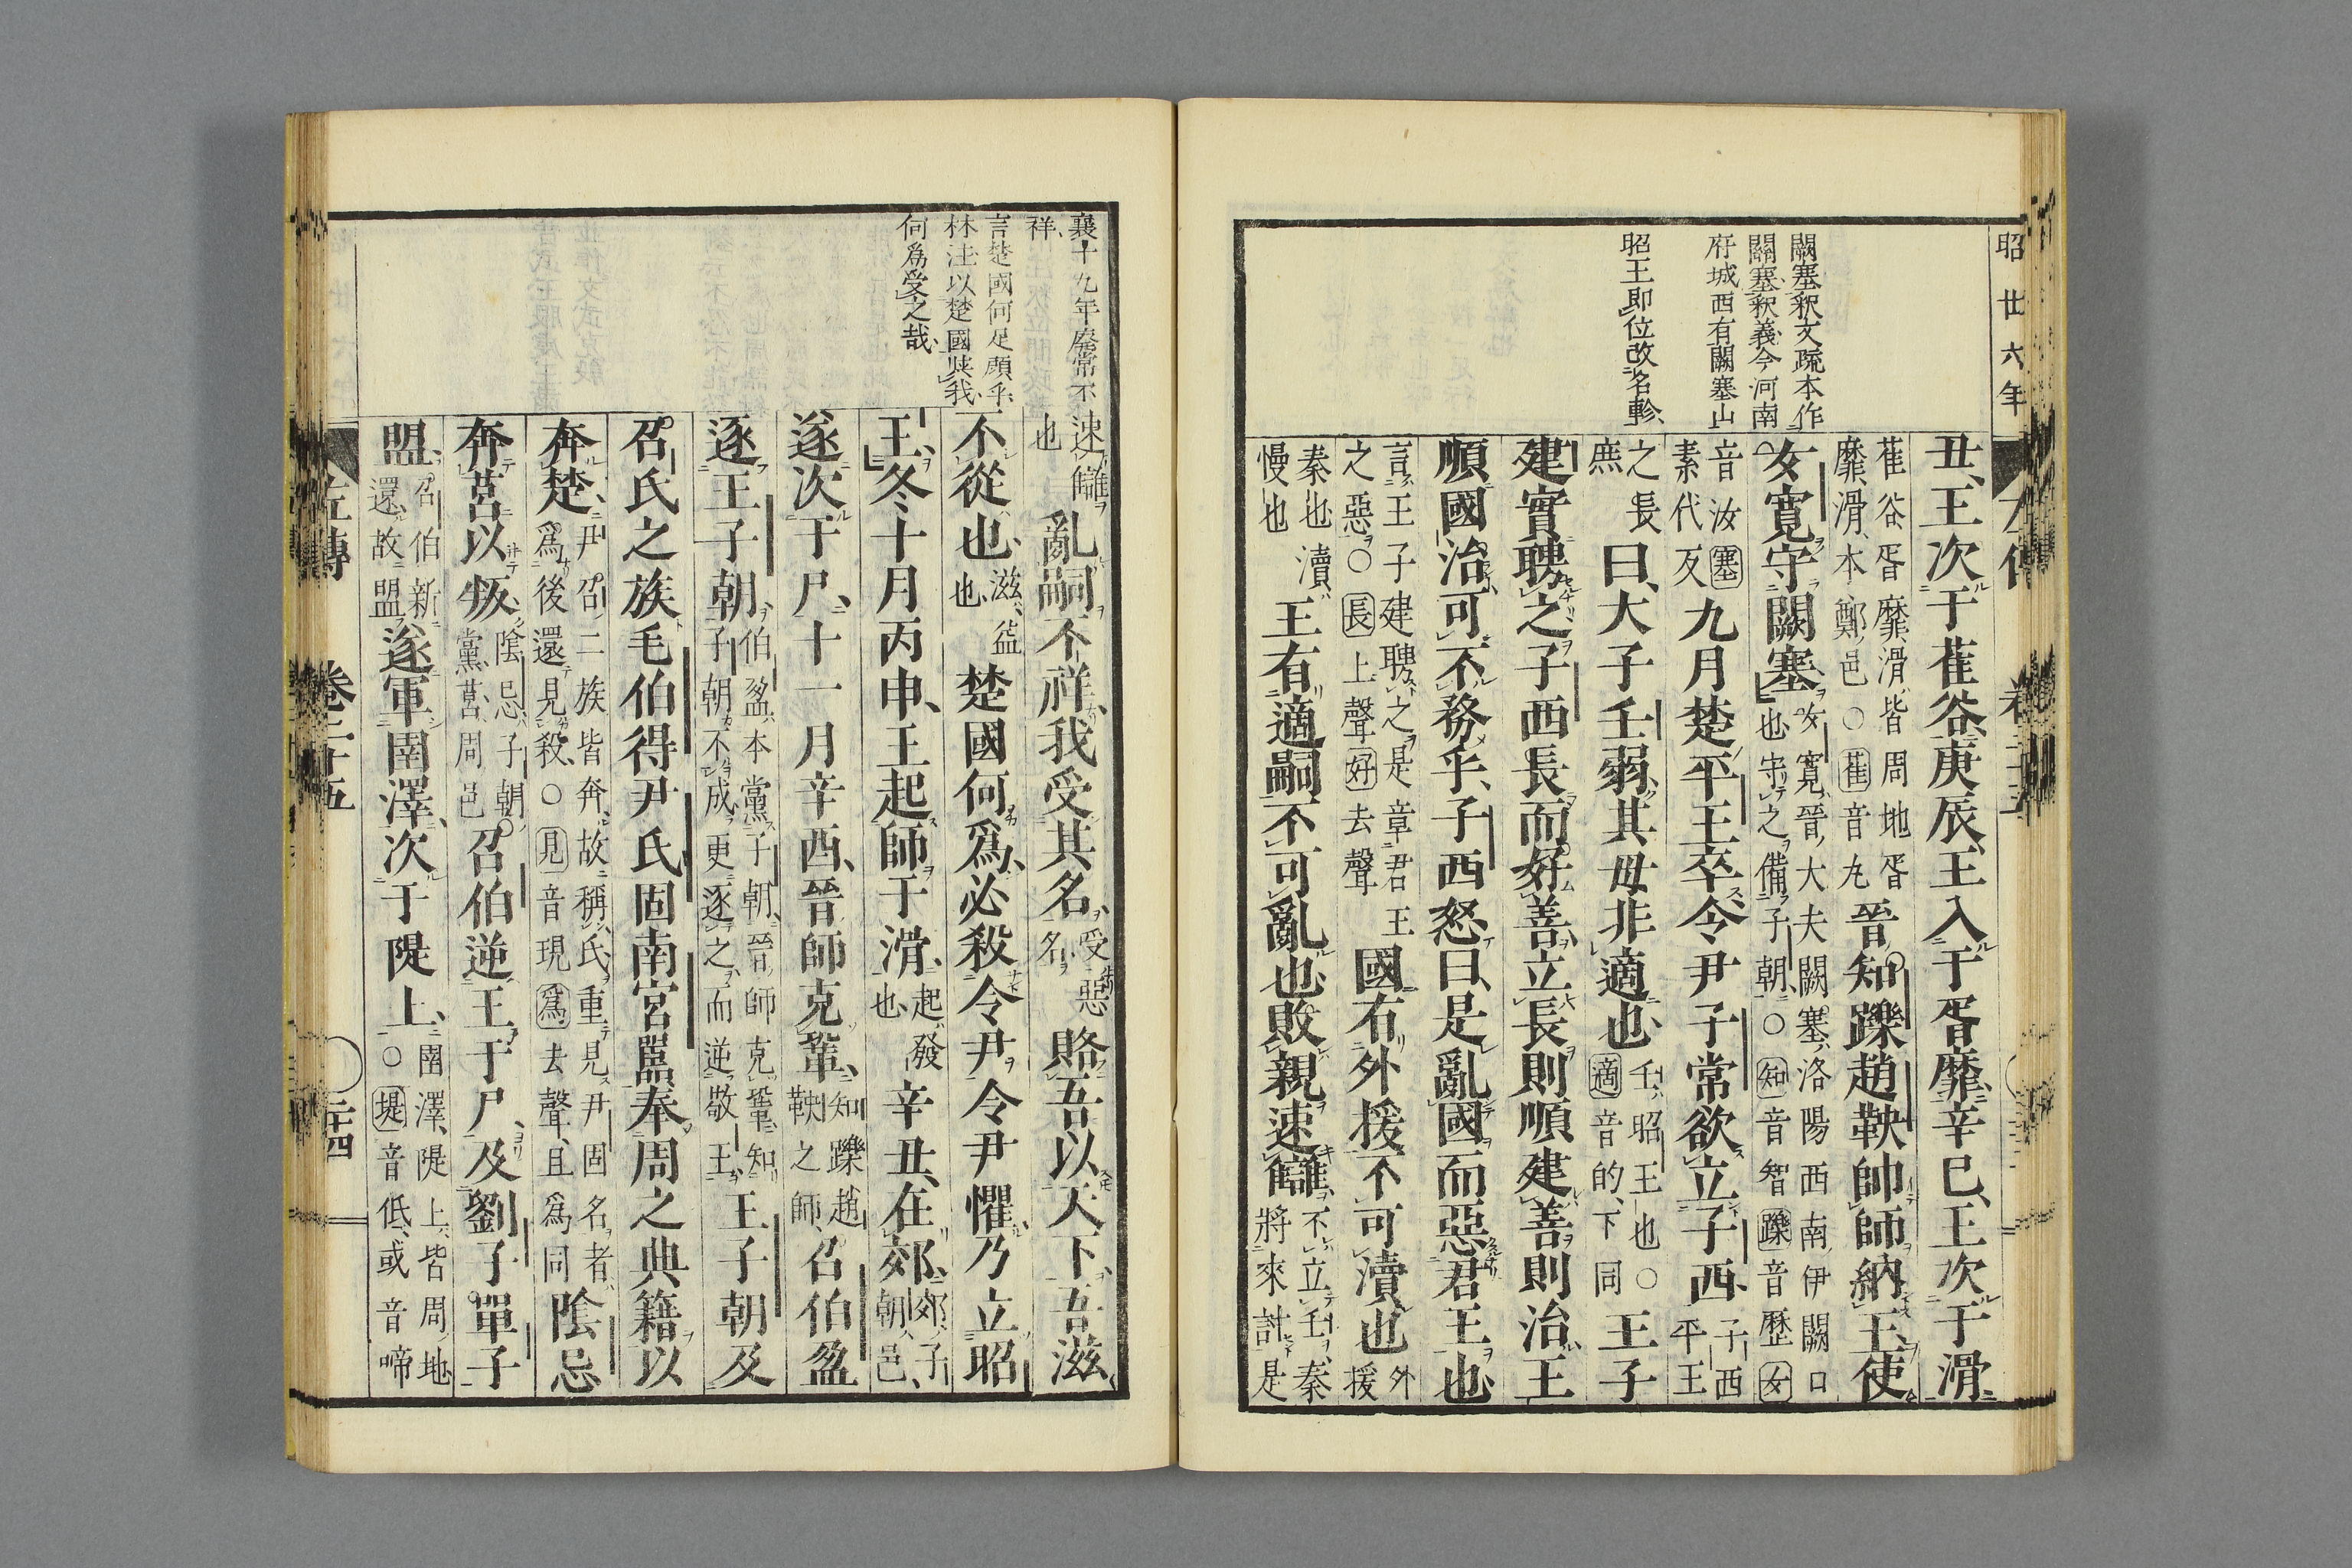 昭廿六年
闕塞釈文疏本作
關塞釈義今河南
府城西有闕塞山
昭王即位改名軫
丑王次于萑谷庚辰王入于胥靡辛巳王次于滑
萑谷胥靡滑皆周地胥
靡滑本鄭邑○萑音丸
晉知躒趙鞅帥師納王使
女寛守闕塞
女寛晉大夫闕塞洛陽西南伊闕口
也守之備子朝○知音智躒音歷女
音汝塞
素代反
九月楚平王卒令尹子常欲立子西
子西
平王
之長
庶
曰大子壬弱其母非適也
壬昭王也○
適音的下同
王子
建實聘之子西長而好善立長則順建善則治王
順國治可不務乎子西怒曰是亂國而惡君王也
言王子建聘之是章君王
之惡○長上聲好去聲
國有外援不可瀆也
外
援
秦也瀆
慢也
王有適嗣不可亂也敗親速讎
不立壬秦
將來討是
襄十九年廢常不
祥
言楚國何足顧乎
林注以楚國媟我
何爲受之哉
速讎
也
亂嗣不祥我受其名
受惡
名
賂吾以天下吾滋
不從也
滋益
也
楚國何爲必殺令尹令尹懼乃立昭
王冬十月丙申王起師于滑
起發
也
辛丑在郊
郊子
朝邑
遂次于尸十一月辛酉晉師克鞏
知躒趙
鞅之師
召伯盈
逐王子朝
伯盈本黨子朝晉師克鞏知
子朝不成更逐之而逆敬王
王子朝及
召氏之族毛伯得尹氏固南宮嚚奉周之典籍以
奔楚
尹召二族皆奔故稱氏重見尹固名者
爲後還見殺○見音現爲去聲且爲同
陰忌
奔莒以叛
陰忌子朝
黨莒周邑
召伯逆王于尸及劉子單子
盟
召伯新
還故盟
遂軍圉澤次于隄上
圉澤隄上皆周地
○堤音低或音啼
左傳
卷二十五
二十四